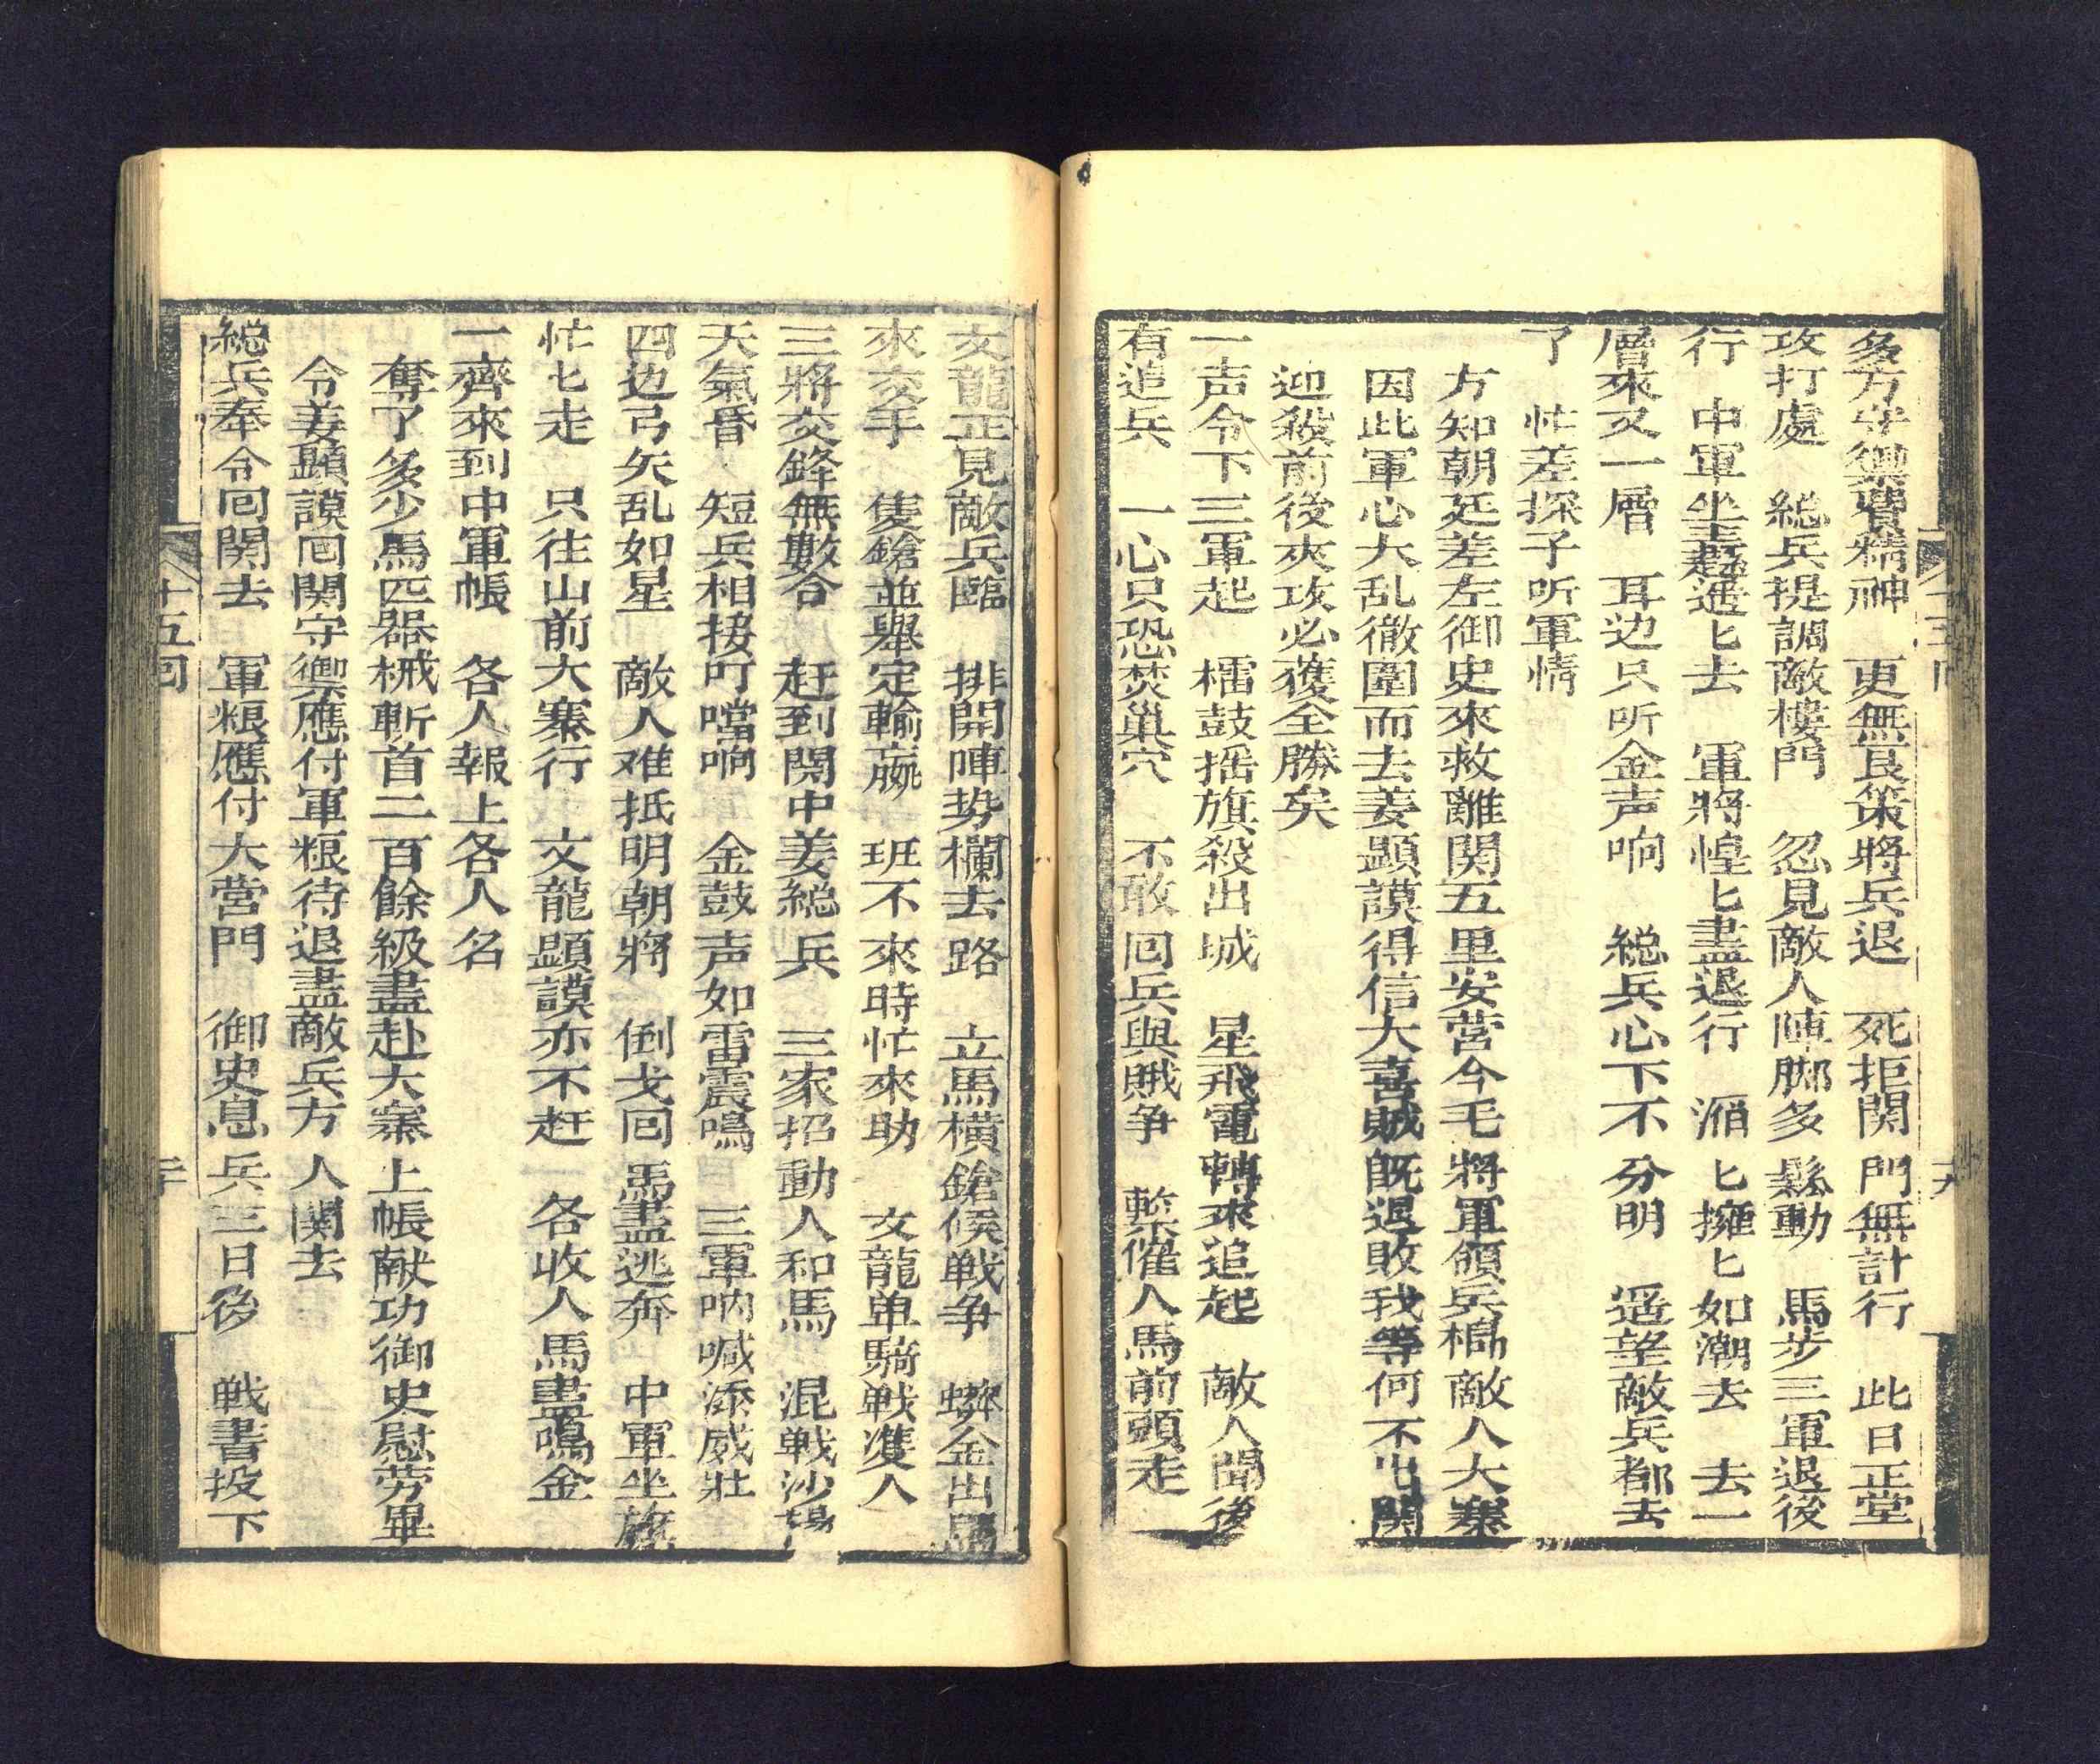 多方守禦費精神　更無良策將兵退　死拒関門無計行　此日正堂
攻打處　総兵提調敵樓門　忽見敵人陣脚多鬆動　馬步三軍退後
行　中軍坐纛遥匕去　軍將惶匕盡退行　匕擁匕如潮去　去一
層來又一層　耳边只听金声响　総兵心下不分明　遥望敵兵都去
了　忙差探子听軍情
方知朝廷差左御史來救離関五里安營今毛將軍領兵搗敵人大寨
因此軍心大乱徹圍而去姜顕謨得信大喜賊既退敗我等何不出関
迎殺前後夾攻必獲全勝矣
一声令下三軍起　擂鼓揺旗殺出城　星飛電轉來追起　敵人聞後
有追兵　一心只恐焚巢穴　不敢囘兵與賊争　緊催人馬前頭走
文龍正見敵兵臨　排開陣势欄去路　立馬横鎗候戦争　蠎金出馬
來交手　隻鎗並舉定輸嬴　班不來時忙來助　文龍单騎戦雙人
三將交鋒無數合　赶到関中姜総兵　三家招動人和馬　混戦沙塲
天氣昏　短兵相接叮噹响　金鼓声如雷震鳴　三軍吶喊添威壯
四边弓矢乱如星　敵人难抵明朝將　倒戈囘馬盡逃奔　中軍坐旗
忙匕走　只往山前大寨行　文龍顕謨亦不赶　各收人馬盡鳴金
一齊來到中軍帳　各人報上各人名
奪了多少馬匹器械斬首二百餘級盡赴大寨上帳献功御史慰劳畢
令姜顕謨囘関守禦應付軍粮待退盡敵兵方入関去
総兵奉令囘関去　軍粮應付大营門　御史息兵三日後　戦書投下
十五回